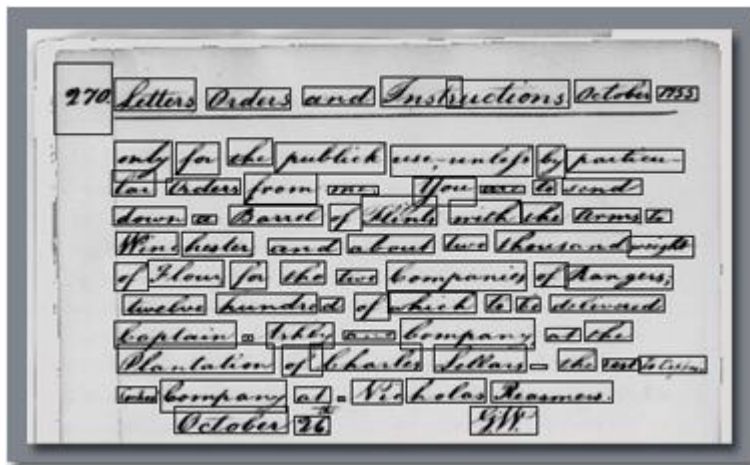 270. Letters Orders and Instructions October 1755
only for the publick use, unless by particu-
lar Orders from me. You are to send
down a Barrel of Flints with the Arms to
Winchester and about two thousand weight
of Flour for the two Companies of Rangers;
twelve hundred of which to be delivered
Captain Ashby and Company at the
Plantation of Charles Sellars - the rest to Captn.
Cockes Company at Nicholas Reasmers.
October 26th
G.W.